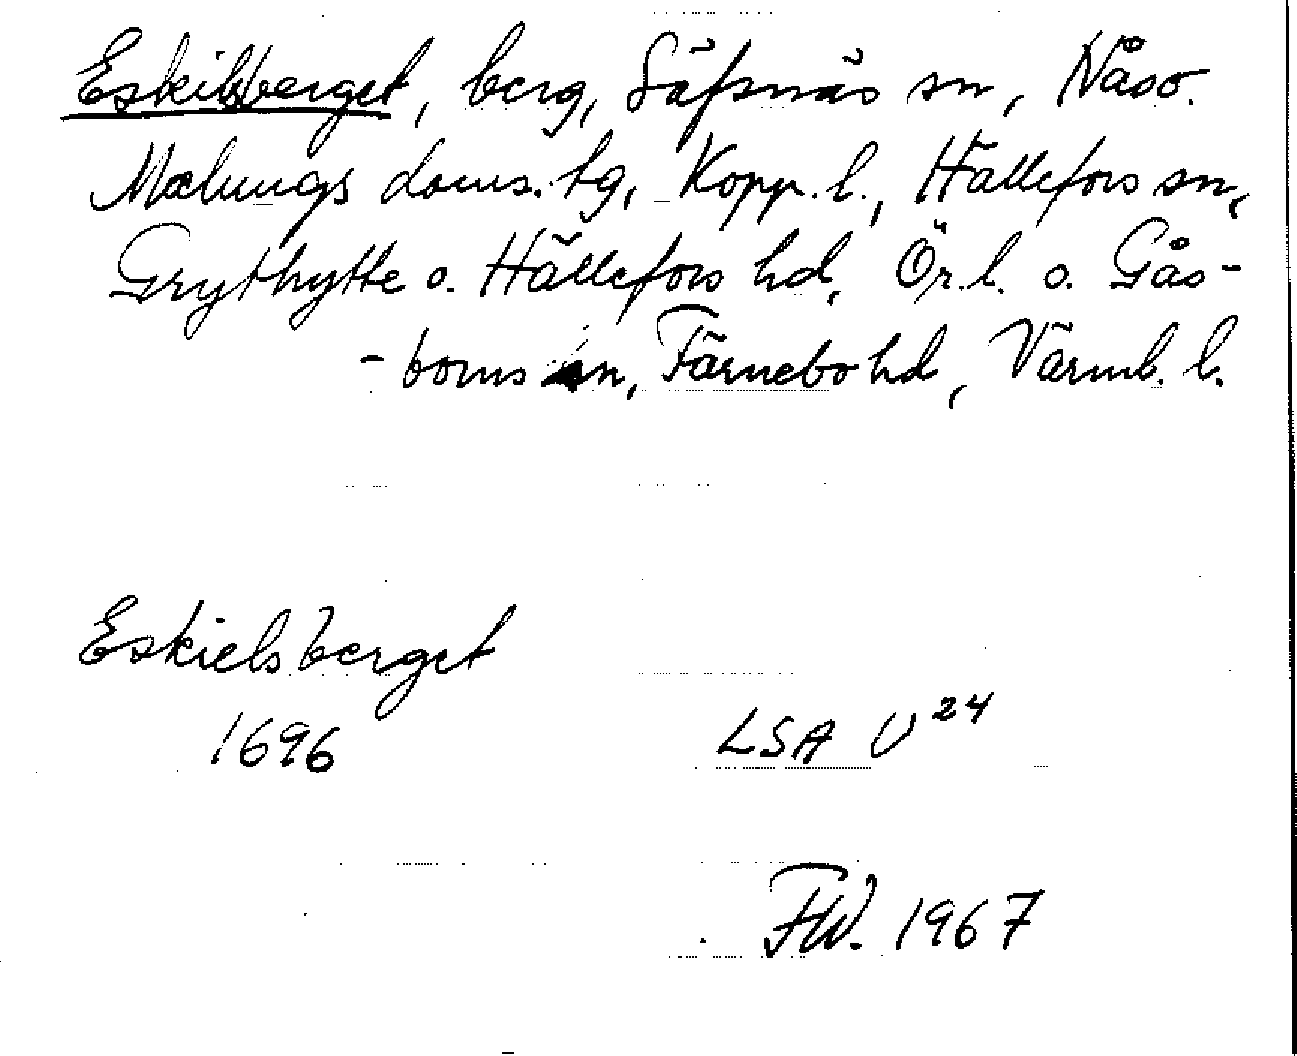 Eskilsberget, berg, Säfsnäs sn, Nås o.
Malungs doms. tg, Kopp. l., Hällefors sn,
Grythytte o. Hällefors hd, Ör. l. o. Gås-
-borns sn, Färnebo hd, Värml. l.
Eskielsberget
1696 LSA U 24
FW. 1967